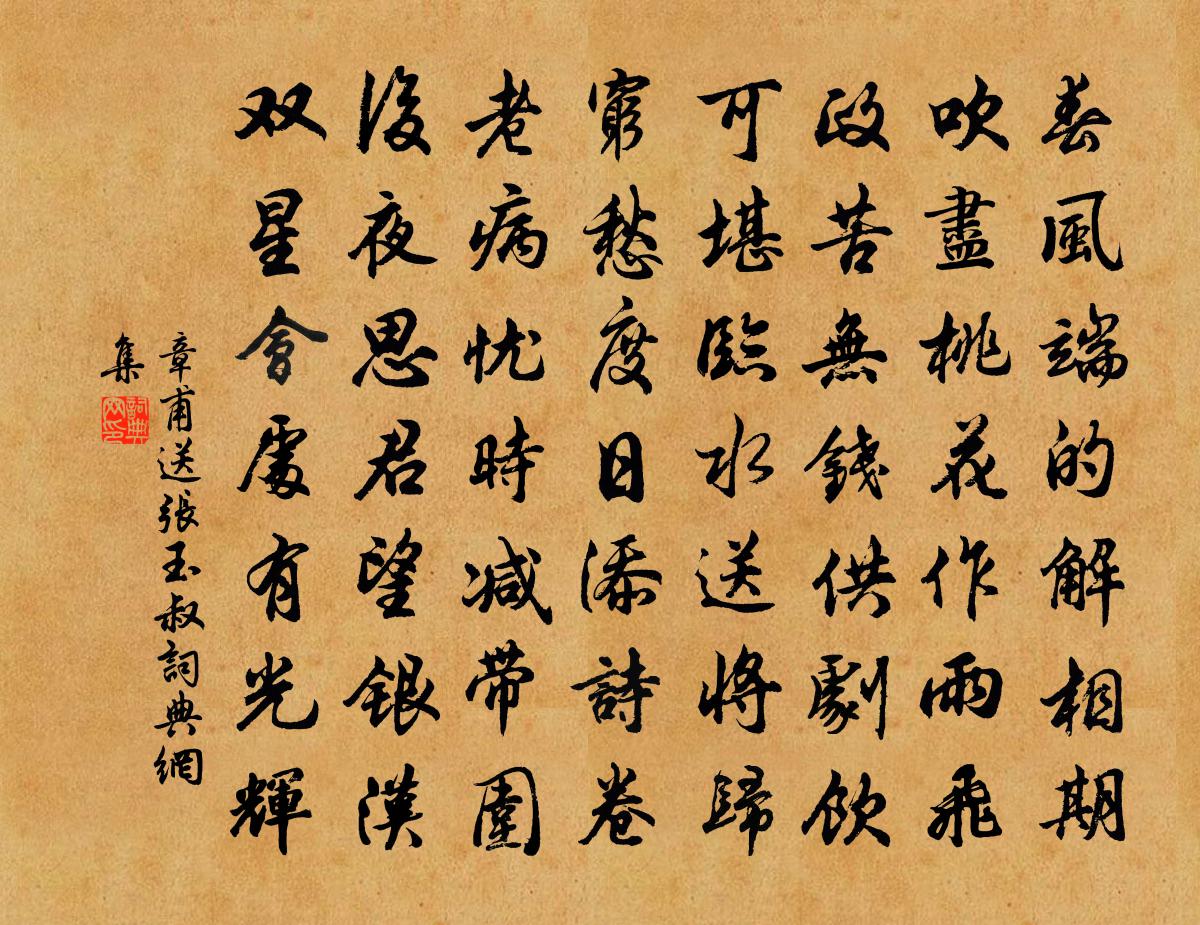 春風端的解相期
吹盡桃花作雨飛
政苦無錢供劇飲
可堪臨水送將歸
窮愁度日添詩卷
老病忧時减帶圍
後夜思君望銀漢
双星會處有光輝
章甫送張玉叔詞典網
集
詞典
网印